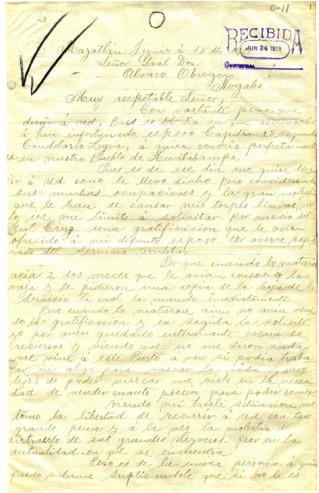 0-11
RECIBIDA
JUN 24 1919
Mazatlán Junio á 18 de
Señor Gral Don.
Alvaro Obregon
Nogales
Muy respetable Señor,
Con bastante pena me
dirijo á Ud,
á mi infortunado esposo Capitán 2º segundo
Candelario Leyva, á quien conocio perfectamente
en nuestro Pueblo de Huatabampo,
Pues es de ese
rir á Ud como le llevo dicho, Pero considerando
sus muchas ocupaciones y la gran molestia
que le han de causar mis torpes lineas, no
lo ice me limité á solicitar por medio del
Gral Cruz, una gratificacion que le avian
ofrecido á mi difunto esposo. Por averse sepa
rado del Servicio Militar.
Por que cuando lo mataron
acia 2 dos meses que le avian consedido la
vaja y le pidieron una copia de la hoja de
Servicio la cual la mando inmediatamente
Pero cuando lo mataron aun no avia veni
do su gratificacion y en segida la solicité
yo por aver quedado enteramente escasa de
recursos y viendo que no me
me vine á este Puerto á ver si podia traba
jar en algo para buscar la vida y muy
lejos de poder buscar me, vide en la necesi
dad de vender cuanto poseia para poder comer
Siendo mi triste situacion me
tomo la libertad de recurrir á Ud con tan
grande pena y á la vez la molestia de
distraerlo de sus grandes negocios. Pior en la
actualidad en que se encuentra
Pero es de la unica persona á quien
puedo suplicandole que si no le es